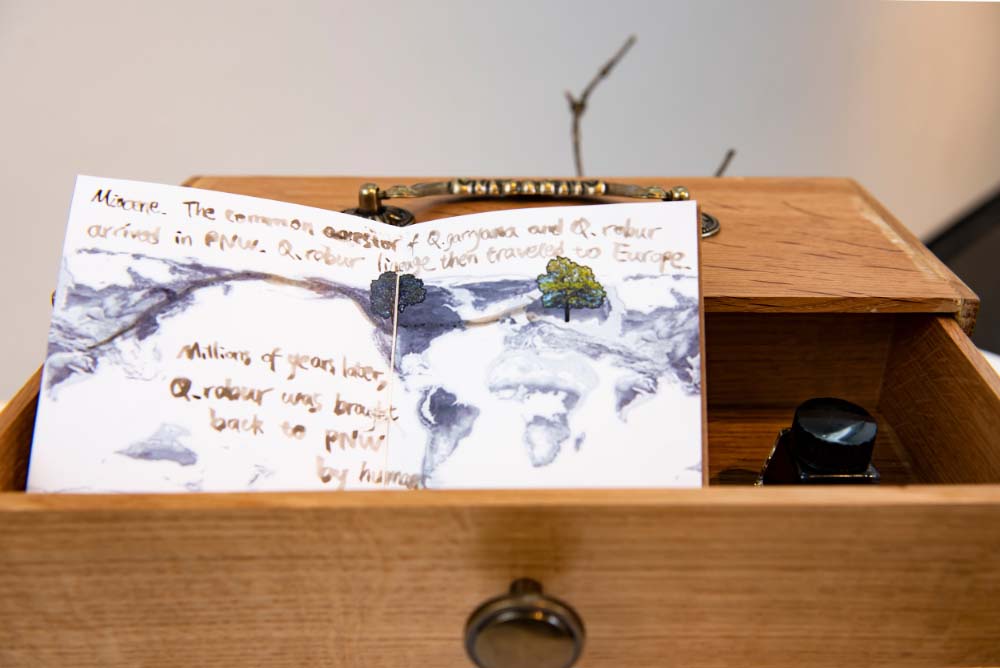 Miocene. The common ancestor of Q.garryana and Q. robur
arrived in PNW. Q.robur lineage then traveled to Europe.
Millions of years later,
Q.robur was brought
back to PNW
by human